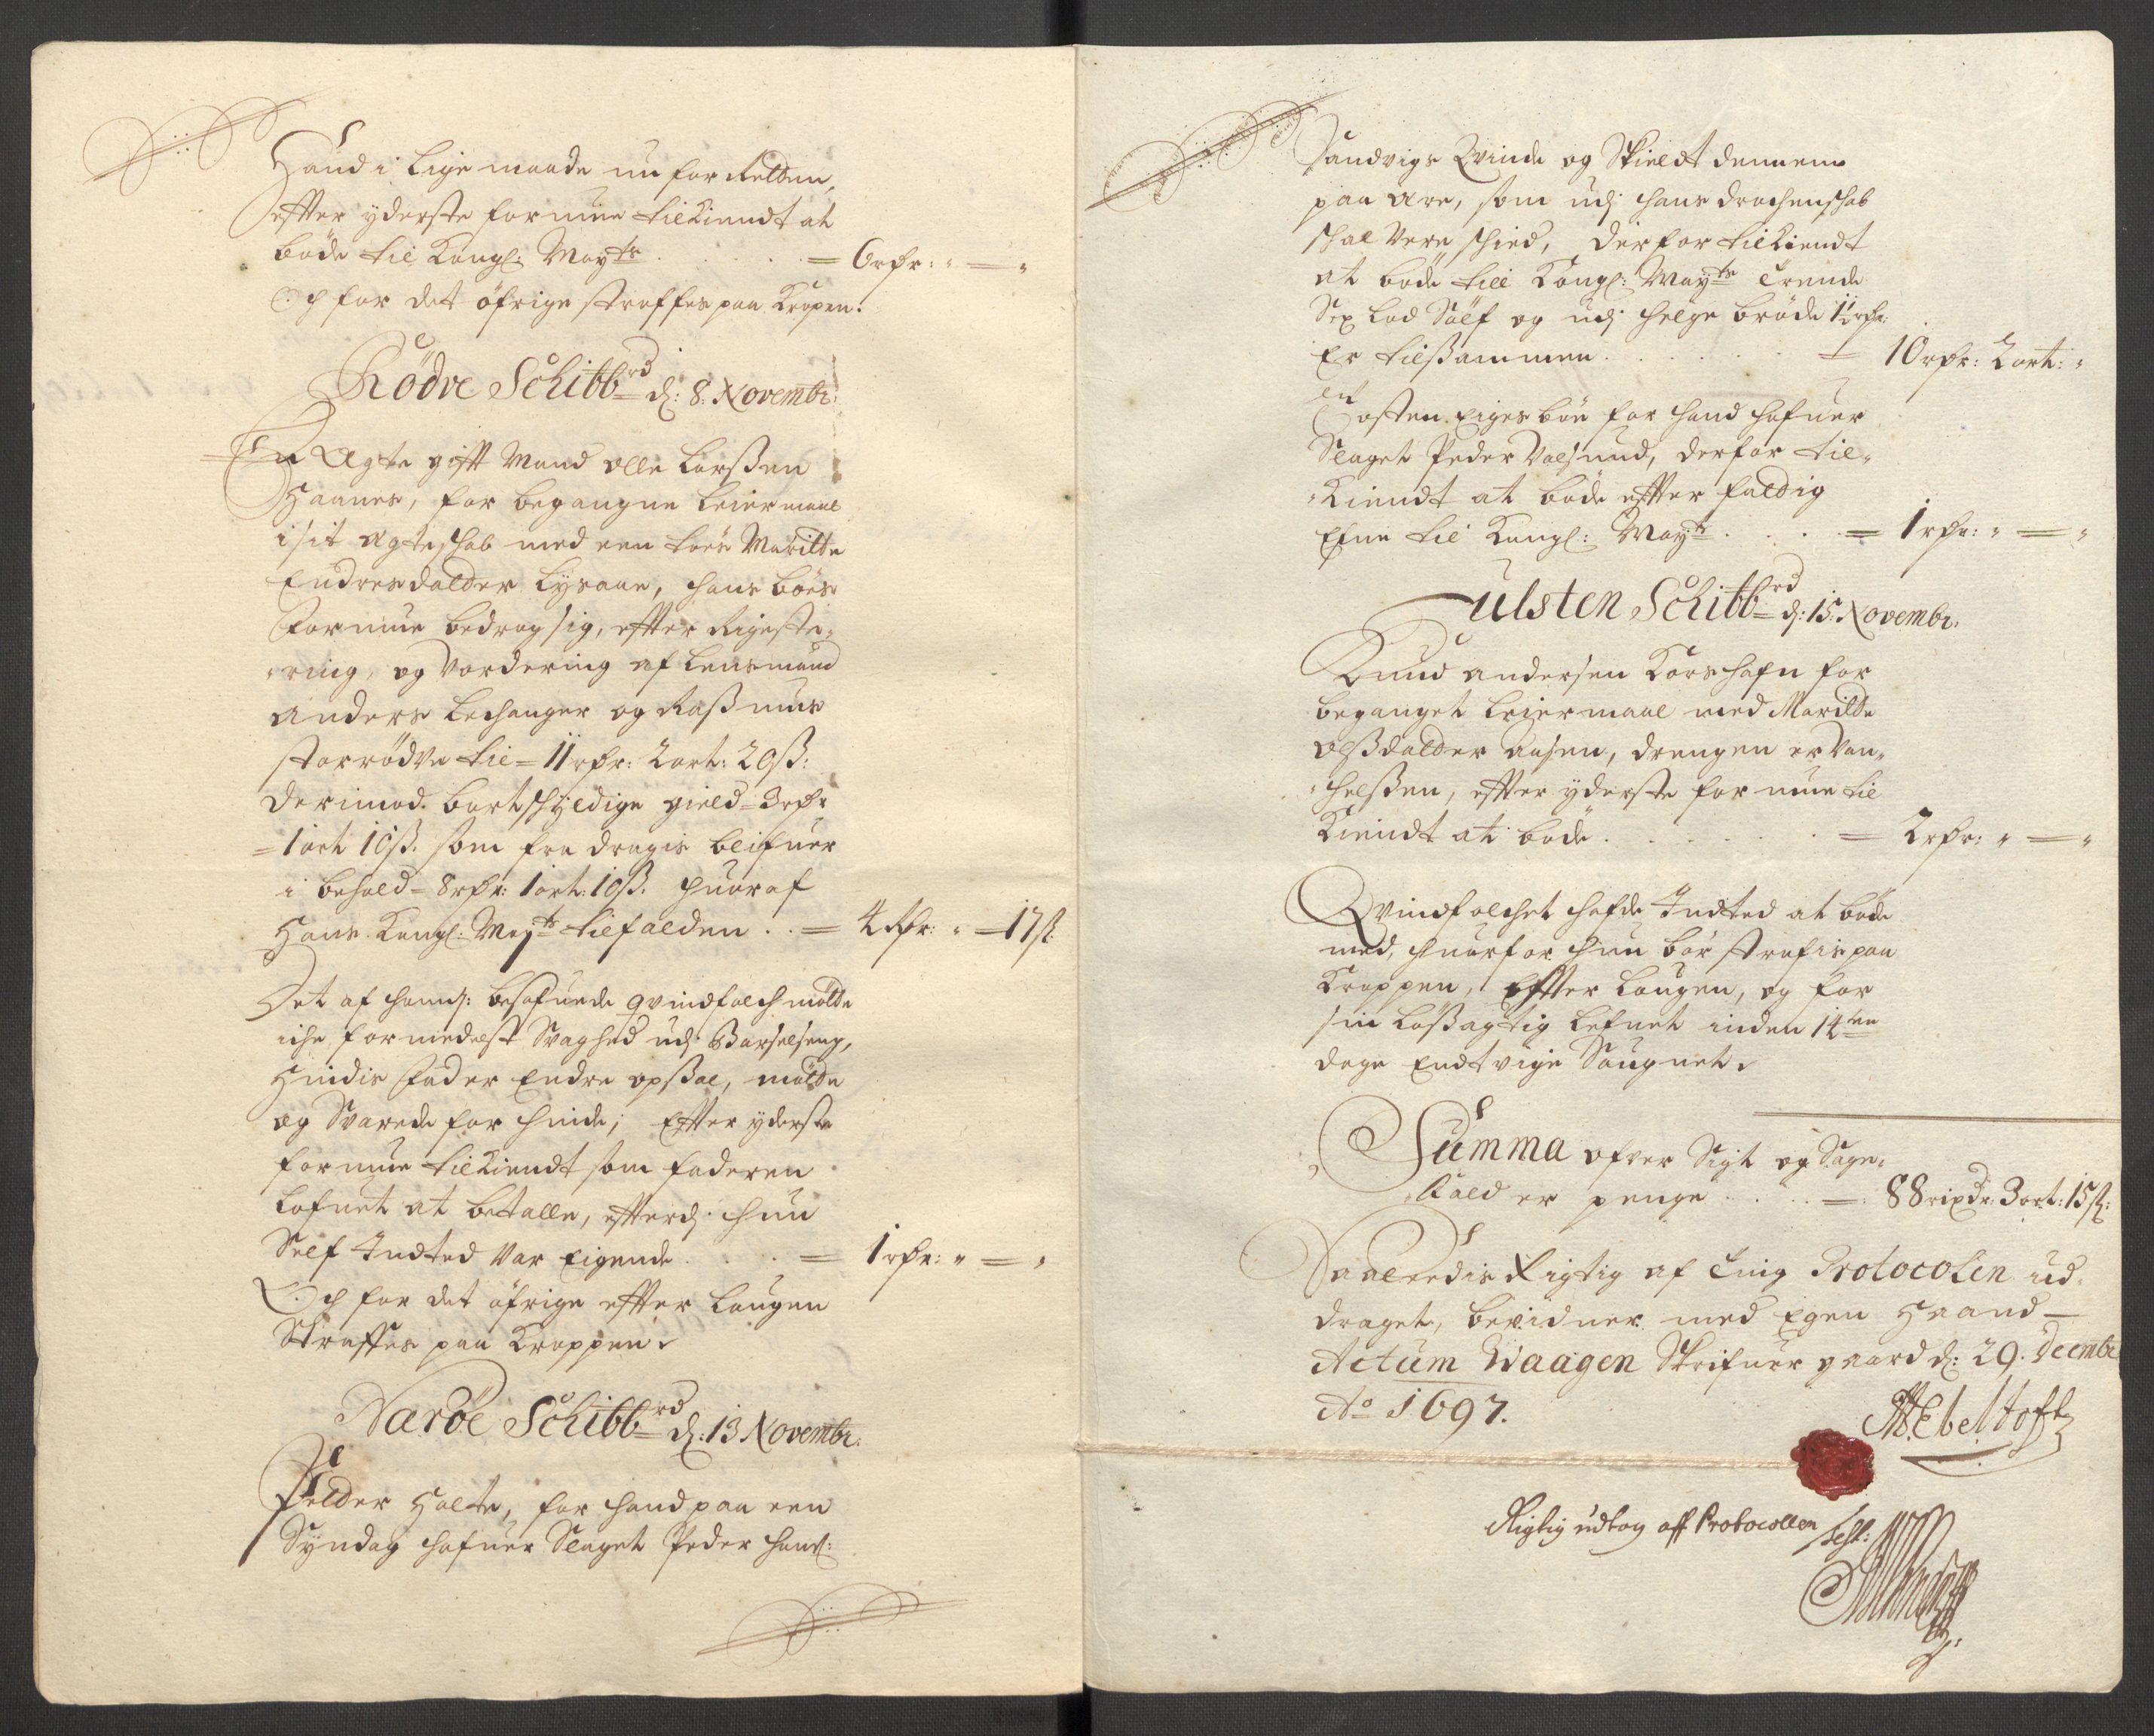 Hand i lige maade nu for Retten,
efter yderste formue tilkiendt at
bøde til Kongl: Mayts . . . = 6 rdr: " = "
Och for det öfrige straffes paa kropen.
Rödve Schibbrd d: 8: Novembr:
En Ægte gift Mand Olle Larssen
Haanes, for begangne leiermaal
i sit ægteskab med een løes Maritte
Endresdatter Lysaae, hans boes
formue bedrog sig, efter Registe-
ring, og Vordering af lensmand
Anders Lechanger og Rassmus
storrödve til = 11 rdr: 2 ort: 20 ß:
derimod bortskyldige gield = 3 rdr
= 1 ort 10 ß. som fra dragis blifuer
i behold = 8 rdr: 1 ort: 10 ß. huoraf
Hans Kongl: Mayts tilfalden . . = 4 rdr: " = 17 ß:
Det af ham: besofuede qvindfolch mötte
iche formedelst Svaghed udj Barselseng,
Hindis fader Endre opssal, mötte
og Svarede for hinde; Efter yderste
formue tilkiendt som faderen
lofuet at betalle, efterdj hun
Self Indted var Eigende . . . = 1 rdr: " = "
Och for det öfrige efter Lougen
Straffes paa Kroppen.
Næröe Schibbrd d: 13 Novembr:
Petter Holte, for hand paa een
Syndag hafuer Slaget Peder hans:
Sandvigs Qvinde og Skieldt dennem
paa ære, som udj hans drochenskab
skal være skied, derfor tilkiendt
at bøde till Kongl: Mayts trende
Sex lod Sölf og udj helge bröde 1½ rdr:
Er tilsammen . . . = 10 rdr: 2 ort: "
Costen Eigesböe for hand hafuer
Slaget Peder Valsund, derfor til-
kiendt at bøde efter fattig
Efne til Kongl: Mayts . . . = 1 rdr: " = "
ulsten Schibbrd d: 15: Novembr:
Knud Andersen Korshafn for
beganget leiermaal med Maritte
olssdatter Aasen, drengen er van-
helssen, efter yderste formue til
kiendt at bøde . . . = 2 rdr: " = "
Qvindfolchet hafde Indted at bøde
med, huorfor hun bör strafis paa
Kroppen, Efter Lougen, og for
sin lössagtig lefnet inden 14ten
dage Endtvige Saugnet.
Summa ofver Sigt og Sage-
fald er penge . . . = 88 rixdr: 3 ort: 15 ß:
Saaledis Rigtig af Ting Protocolen ud-
draget, bevidner med Egen Haand –
Actum Waagen Skrifuer gaard d: 29. Decembr
Ao 1697.
Ebeltoft
Rigtig udtog aff Protocollen
test: